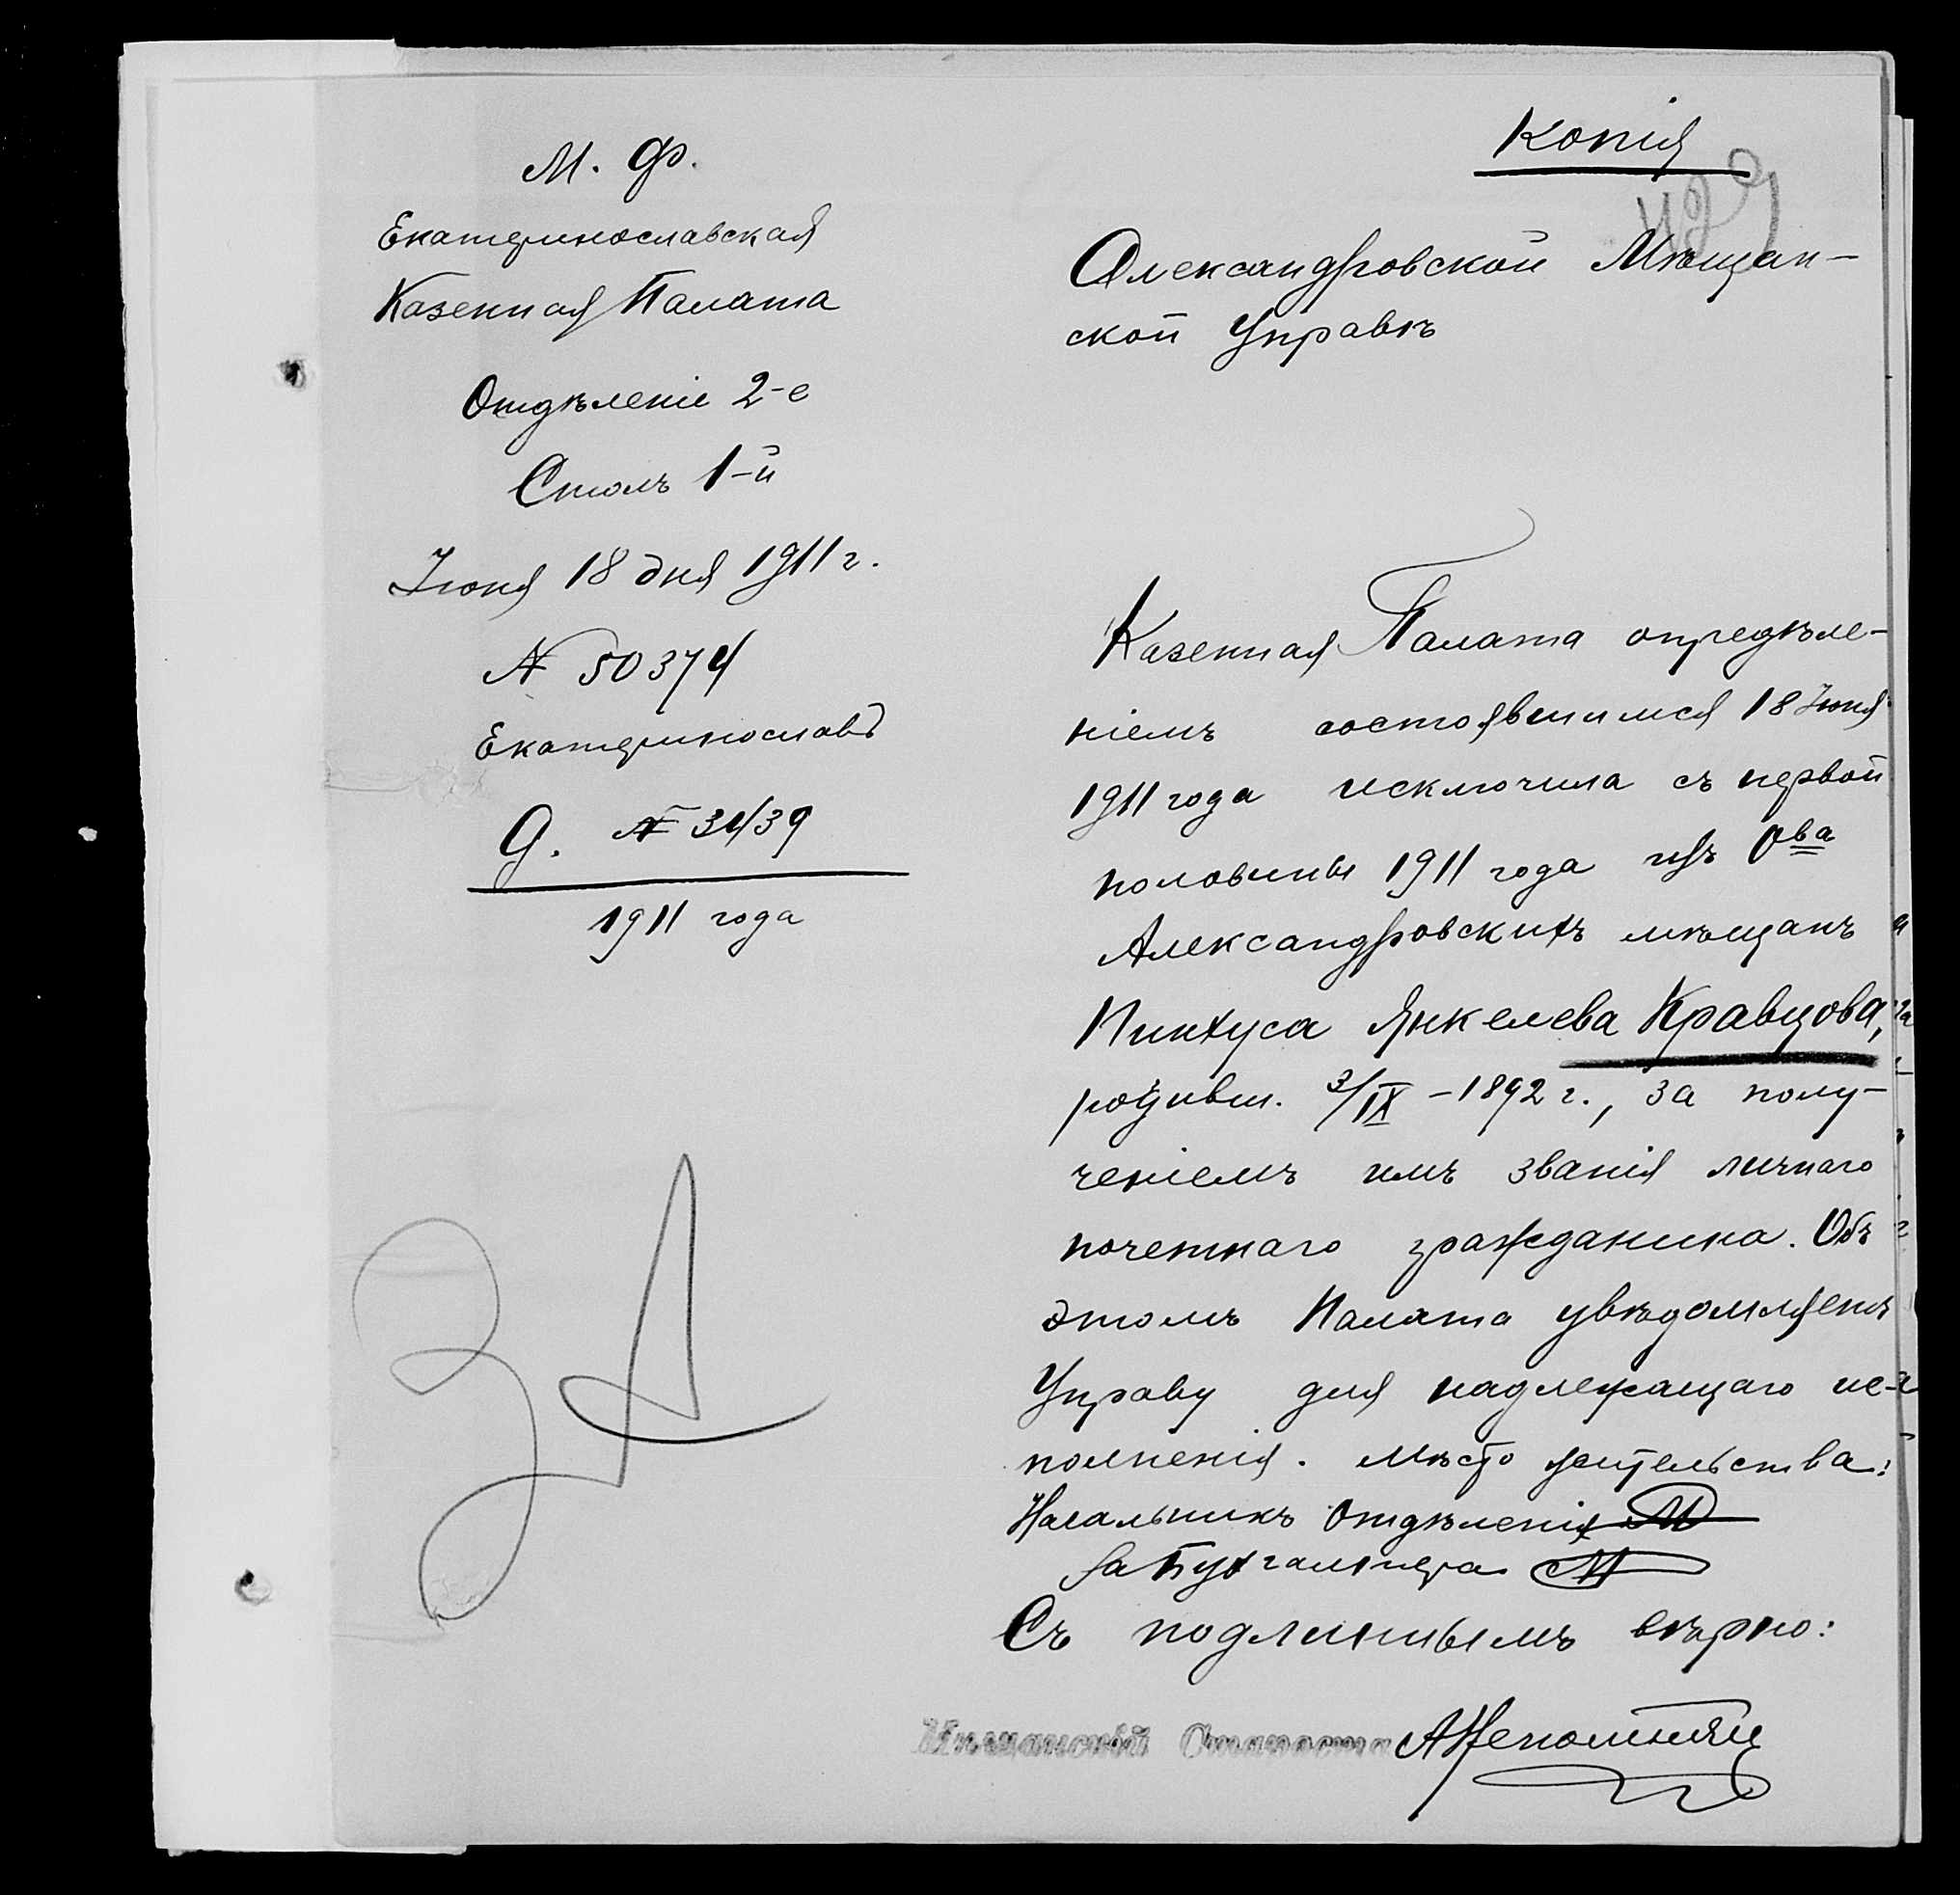 Копія
429
М. Ф.
Екатеринославская
Казенная Палата
Отдѣленіе 2-е
Столъ 1-й
Іюня 18 дня 1911 г.
№ 50374
Екатеринославъ
Д. № 34/39
1911 года
Александровской Мѣщан-
ской Управѣ
Казенная Палата опредѣле-
ніемъ состоявшимся 18 Іюня
1911 года исключила съ первой
половины 1911 года изъ Ова
Александровскихъ мѣщанъ
Пинхуса Янкелева Кравцова,
родивш. 3/IX – 1892 г., за полу-
ченіемъ имъ званія личнаго
почетнаго гражданина. Объ
этомъ Палата увѣдомляетъ
Управу для надлежащаго ис-
полненія. Мѣсто жительства:
Начальникъ Отдѣленія
За Бухгалтера
Съ подлиннымъ вѣрно:
Мѣщанскій Староста АНепомнящ